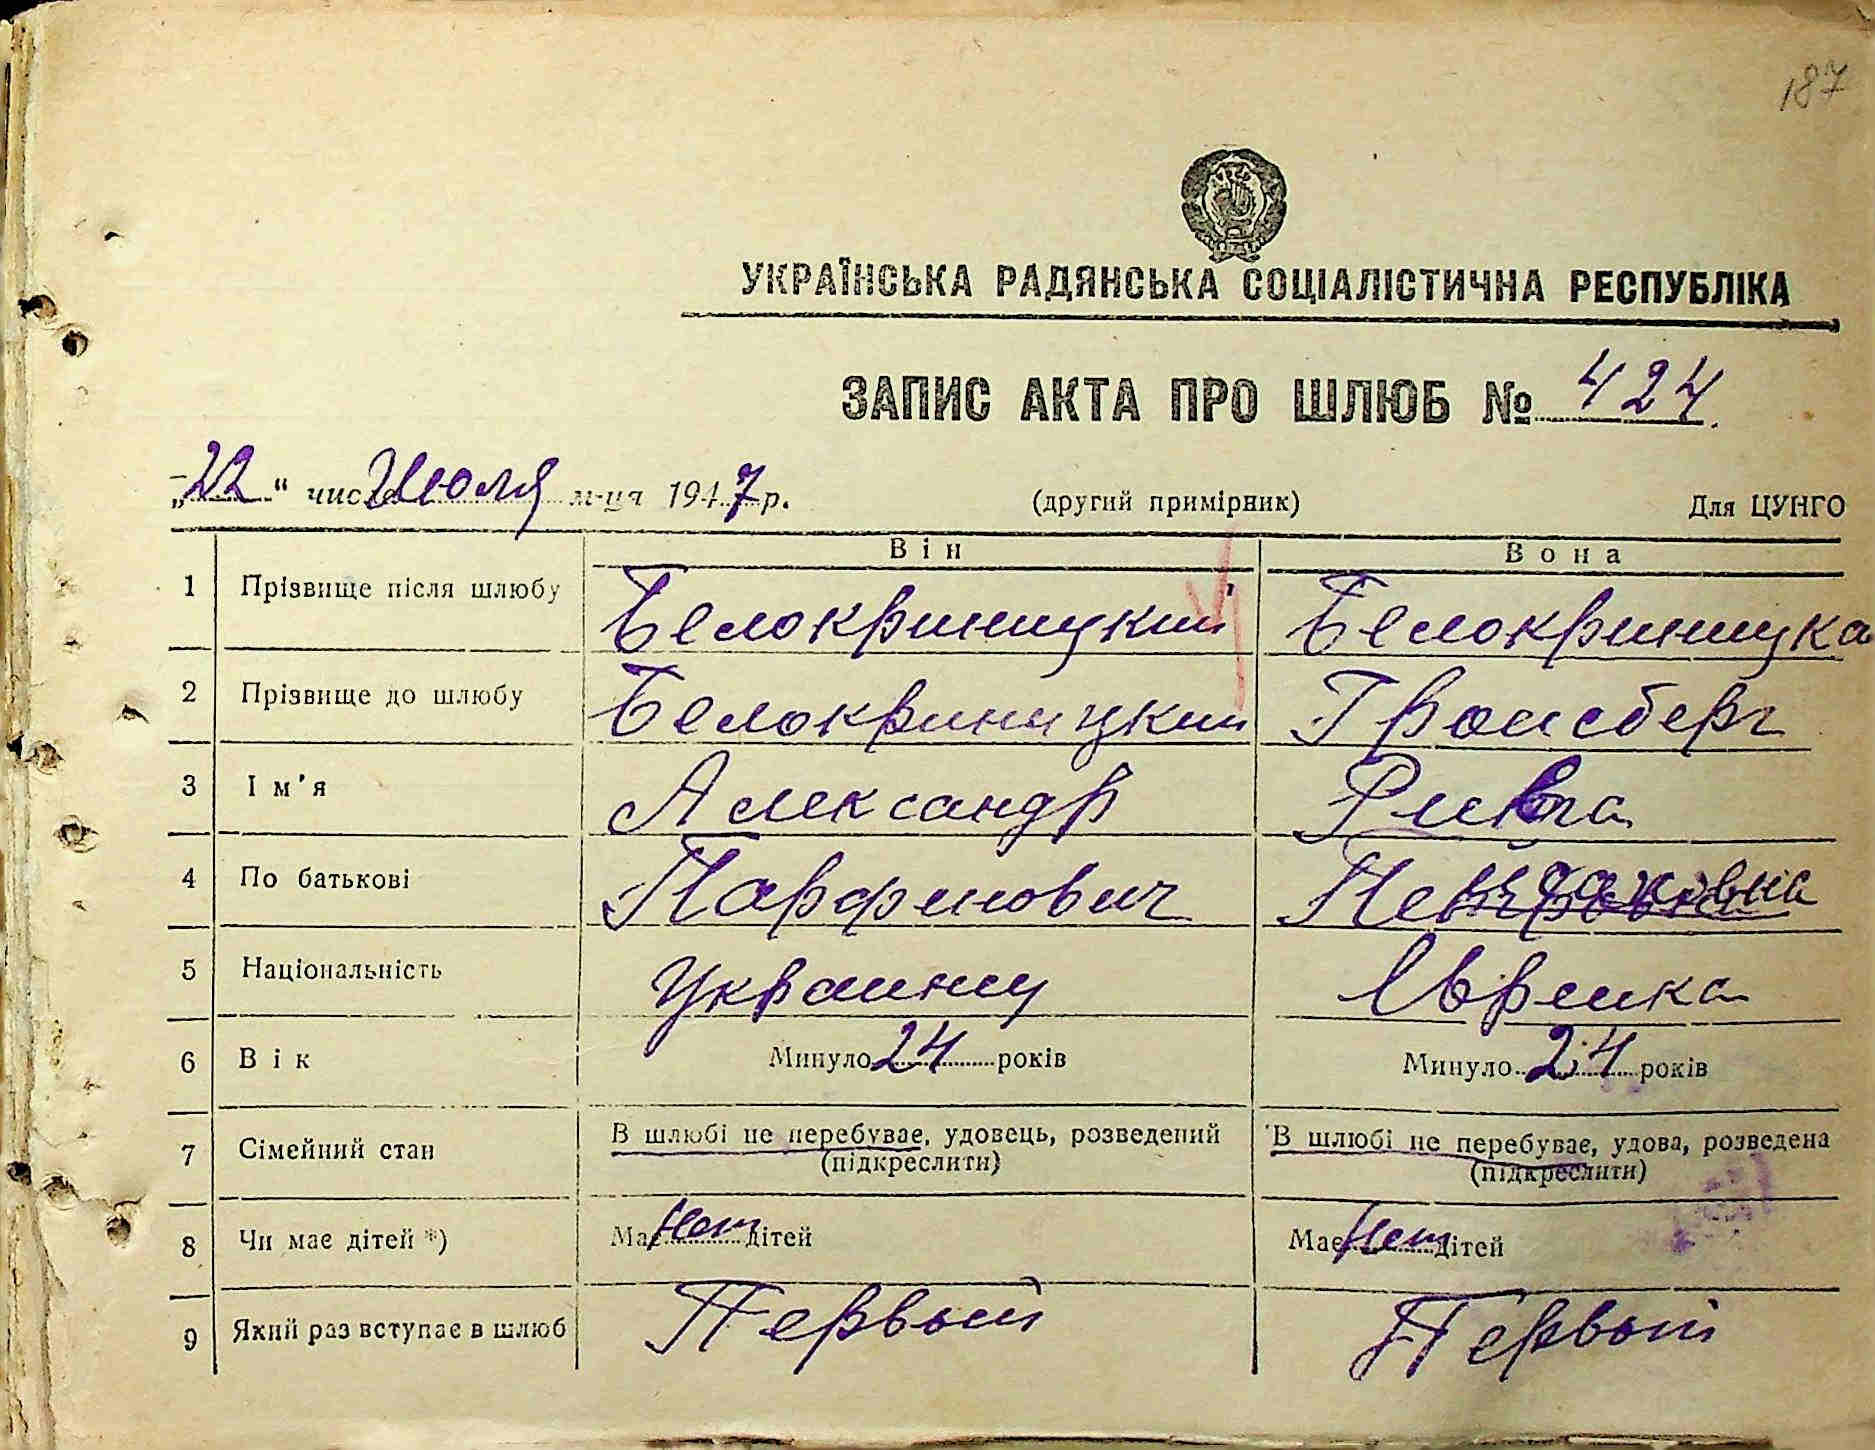 187
УКРАЇНСЬКА РАДЯНСЬКА СОЦІАЛІСТИЧНА РЕСПУБЛІКА
ЗАПИС АКТА ПРО ШЛЮБ № 424
„22“ числа Июля м-ця 1947 р. (другий примірник) Для ЦУНГО
Він Вона
1 Прізвище після шлюбу Белокриницкий Белокриницка
2 Прізвище до шлюбу Белокриницкий Гройсберг
3 Ім'я Александр Рива
4 По батькові Парфенович
5 Національність Украинец Еврейка
6 Вік Минуло 24 років Минуло 24 років
7 Сімейний стан В шлюбі не перебуває, удовець, розведений В шлюбі не перебуває, удова, розведена
(підкреслити) (підкреслити)
8 Чи має дітей *) Має Нет дітей Має Нет дітей
9 Який раз вступає в шлюб Первый Первый